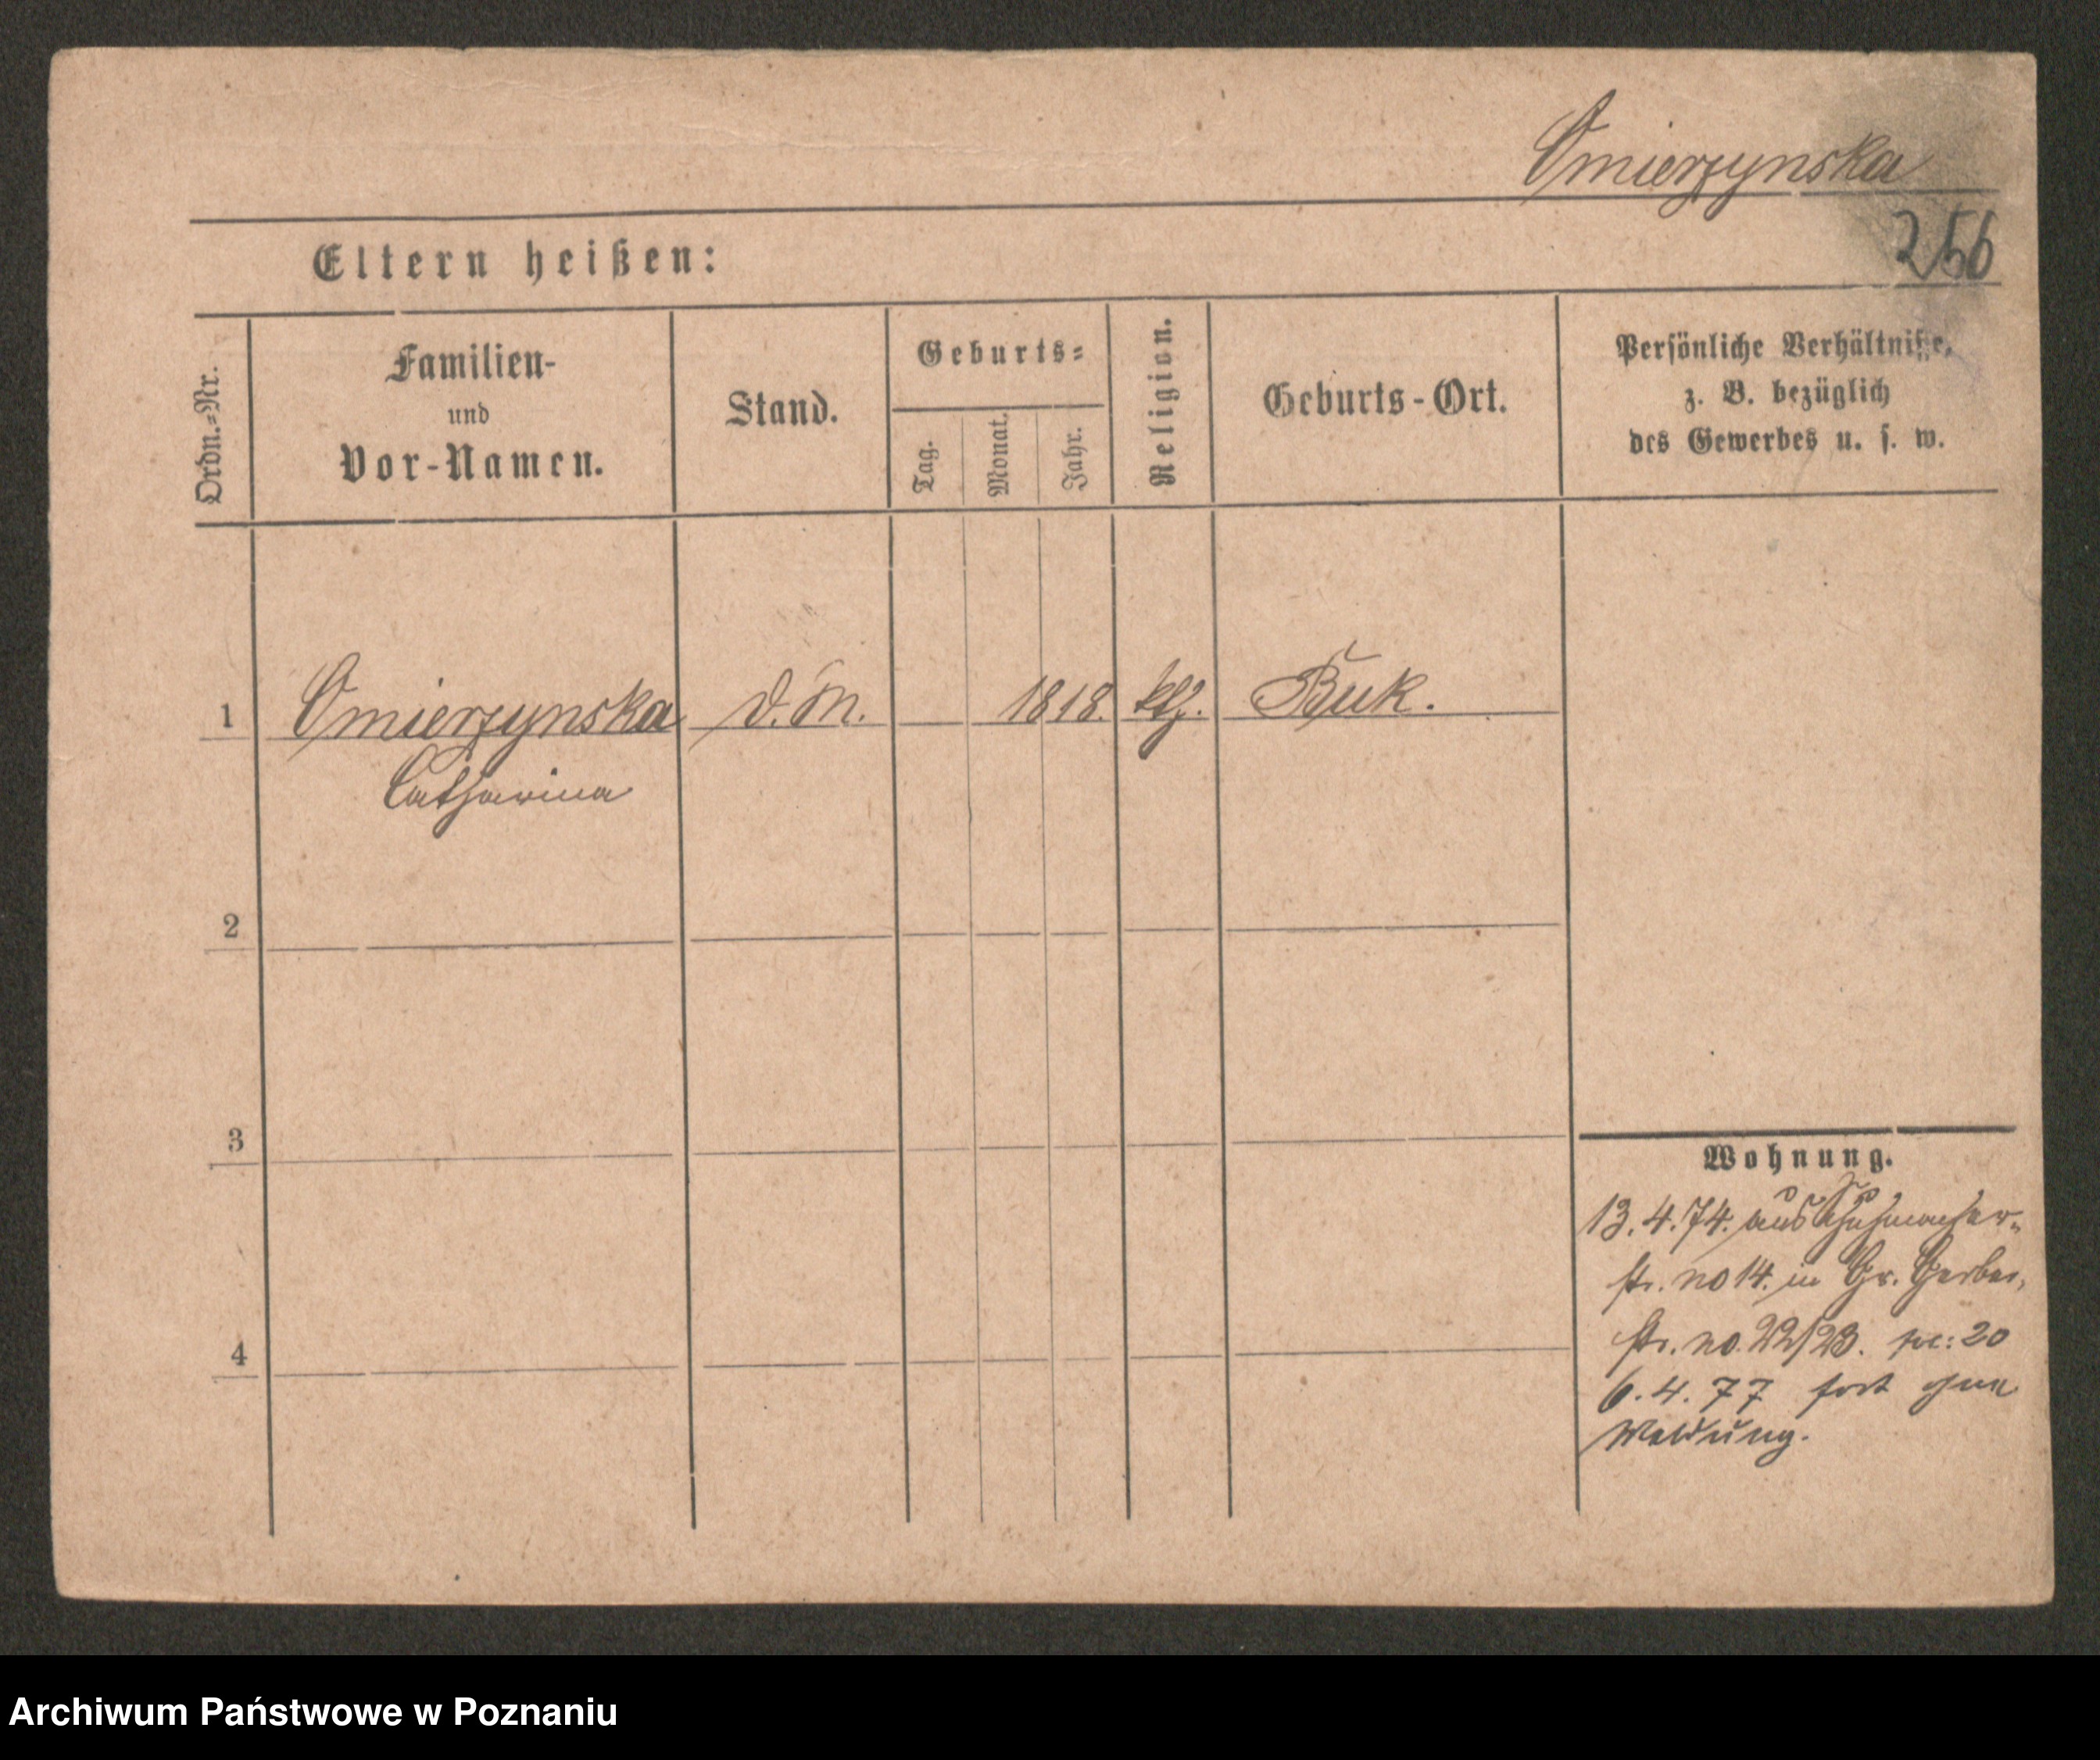 Omierzynska
256
Eltern heißen:
Ordn.=Nr.
Familien-
und
Vor-Namen.
Stand.
Geburts=
Tag.
Monat.
Jahr.
Religion.
Geburts-Ort.
Persönliche Verhältnisse,
z. B. bezüglich
des Gewerbes u. s. w.
1 Omierzynska D. M. 1818. ktg. Buk.
Catharina
2
3
4
Wohnung.
13.4.74. aus Schuhmacher-
str. no 14. in Gr. Gerber,
str. no. 22/23. 20
6.4.77 fort ohne
Meldung.
Archiwum Państwowe w Poznaniu